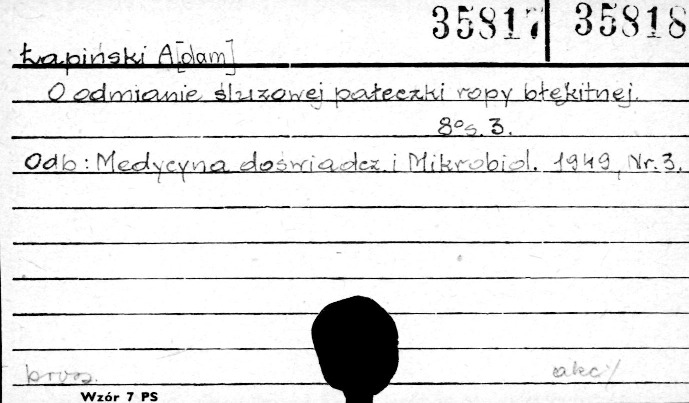 35817 35818
Łapiński A[dam]
O odmianie śluzowej pałeczki ropy błękitnej.
8° s. 3.
Odb: Medycyna doświadcz. i Mikrobiol. 1949, Nr. 3.
brosz. akc/
Wzór 7 PS